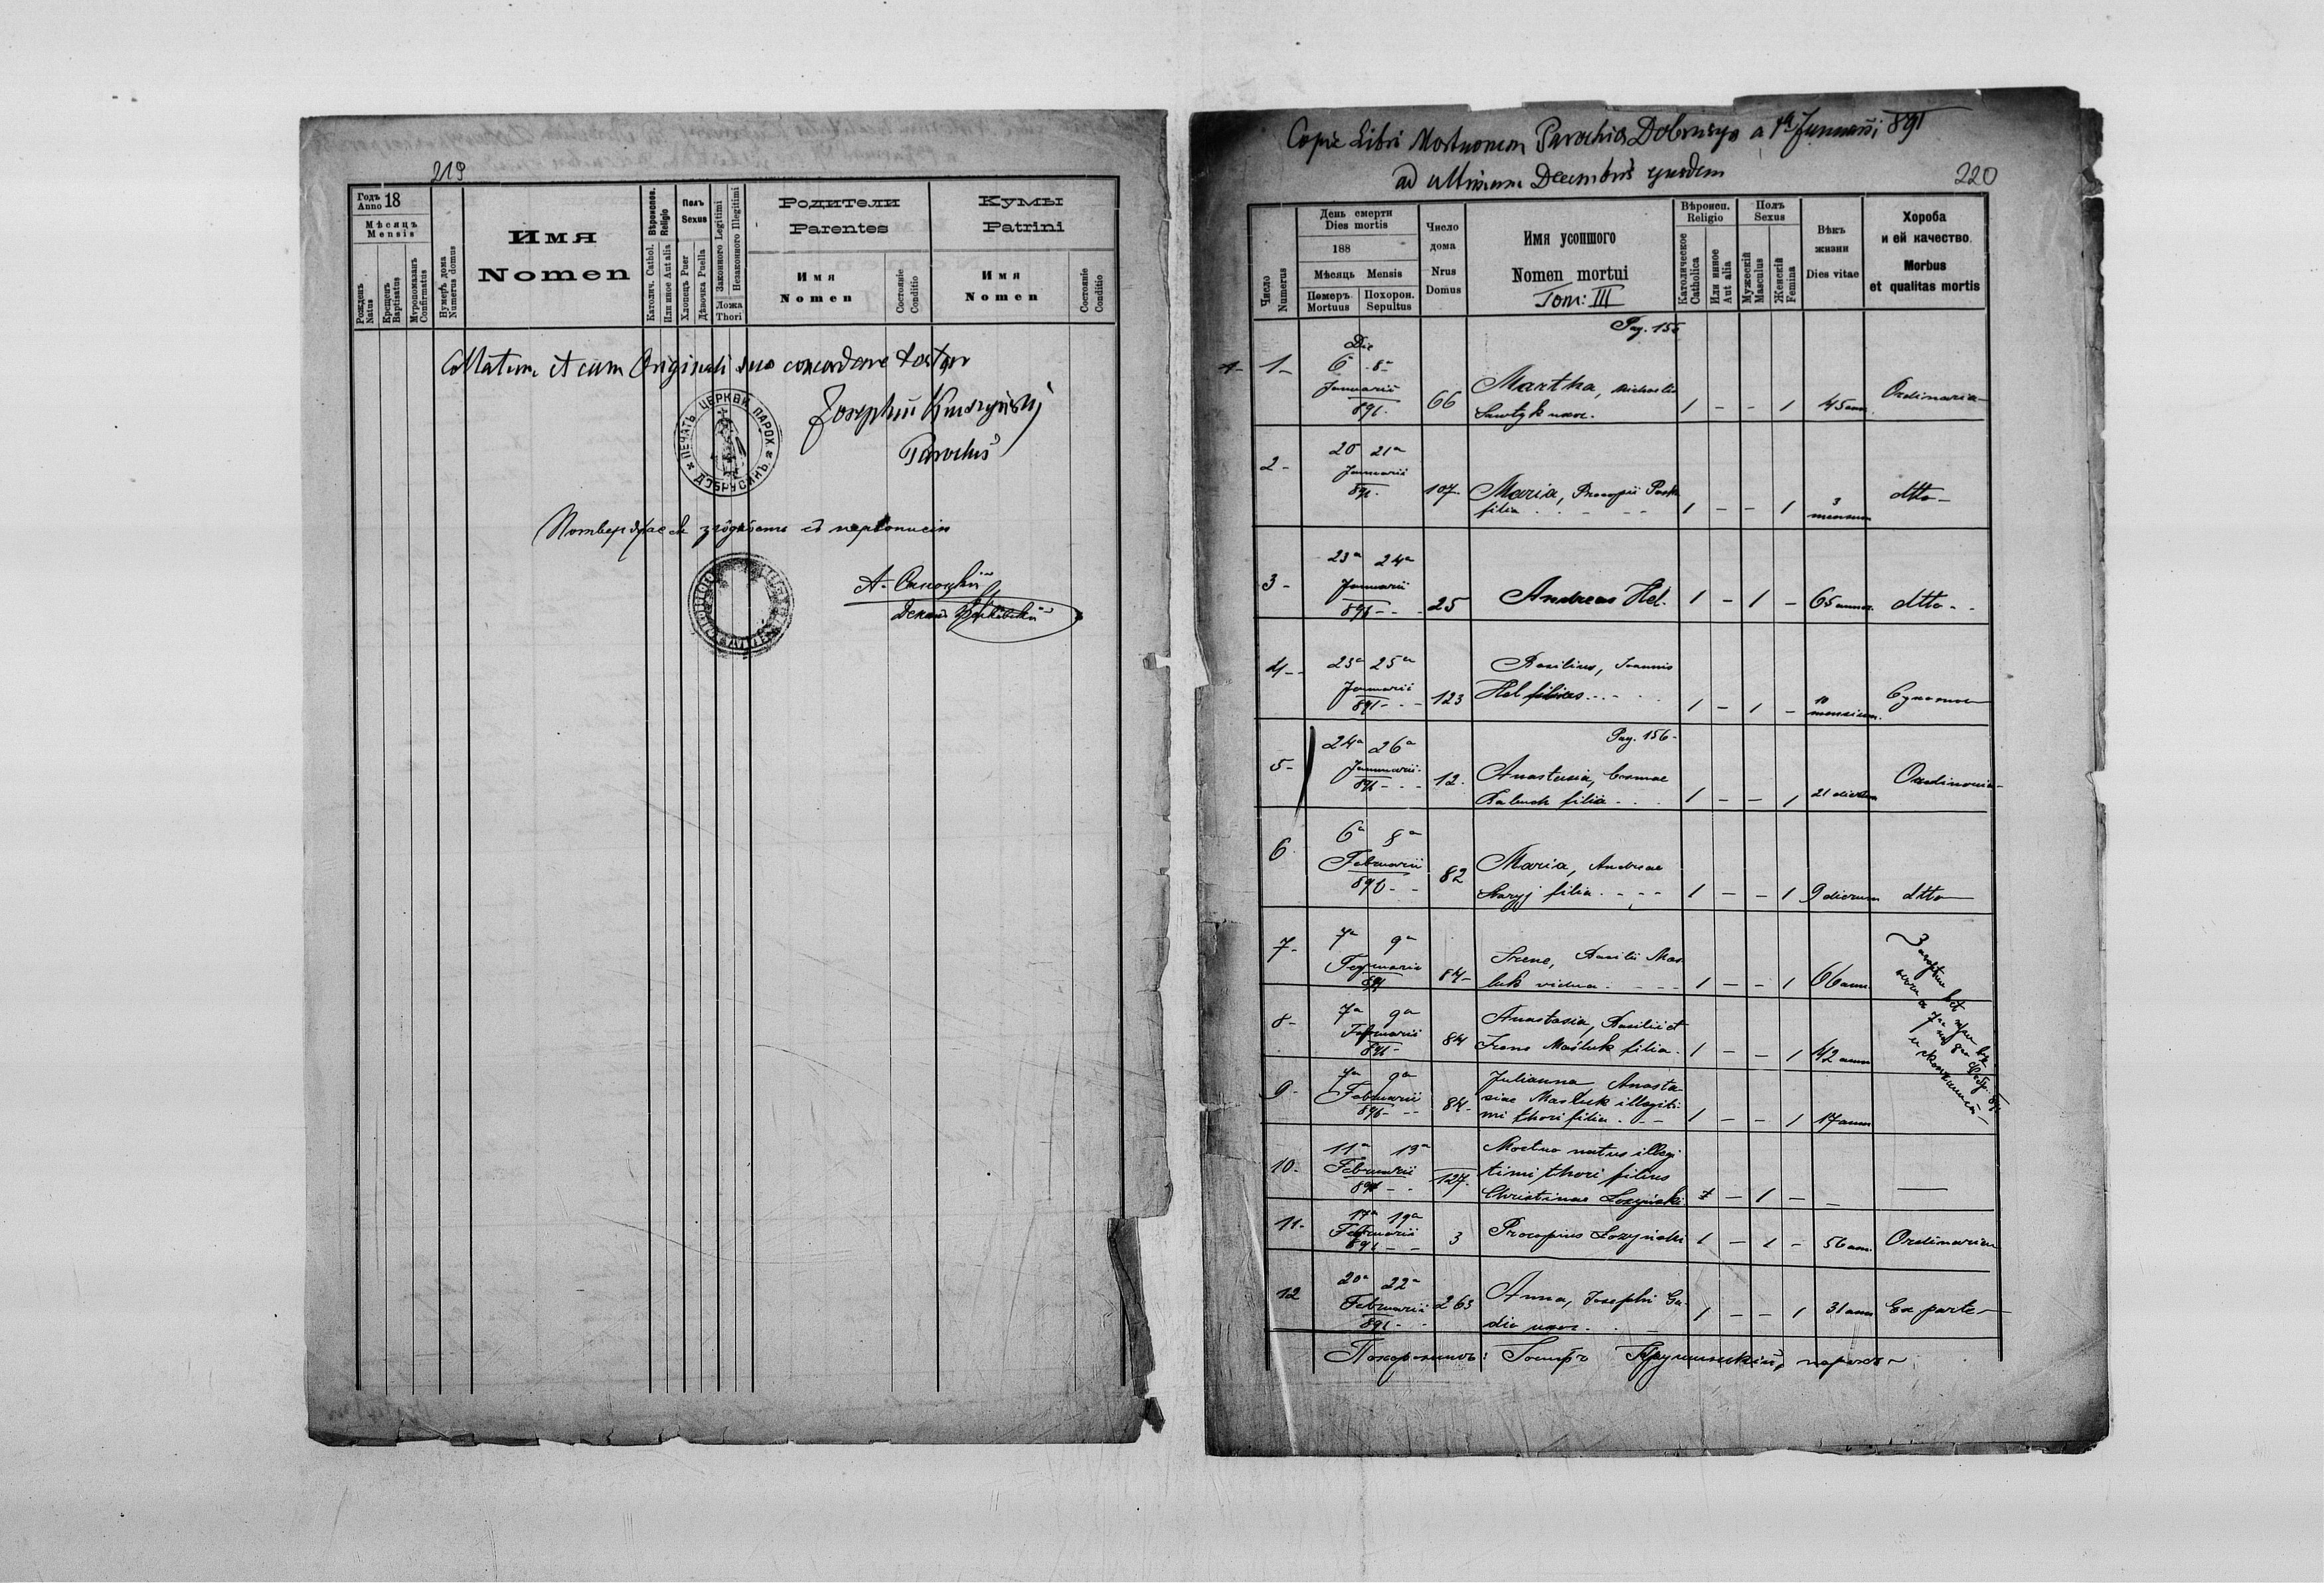 219
Годъ Anno 18
Мѣсяцъ
Mensis
Рожденъ Natus
Крещенъ Baptisatus
Муропомазанъ Confirmatus
Нумеръ дома Numerus domus
Имя
Nomen
Вѣроисов. Religio
Католич. Cathol.
Или иное Aut alia
Полъ
Sexus
Хлопець Puer
Дѣвочка Puella
Законного Legitimi
Незаконного Illegitimi
Ложа
Thori
Родители
Parentes
Имя
Nomen
Состояніе
Conditio
Кумы
Patrini
Имя
Nomen
Состояніе
Conditio
Collatum et cum Originali suo concordare testor
Parochus
ПЕЧАТЬ ЦЕРКВИ ПАРОХ. ДОБРУСИНЪ
Декан
Copie Libri Mortuorum Parochia Dobrusyn a 1a Januarii 891
ad ultimam Decembris ejusdem
220
Число
Numerus
День смерти
Dies mortis
188
Мѣсяць Mensis
Померъ Mortuus
Похорон. Sepultus
Число
дома
Nrus
Domus
Имя усопшого
Nomen mortui
Tom: III
Вѣроисп.
Religio
Католическое Catholica
Или иное Aut alia
Полъ
Sexus
Мужескій Masculus
Женскій Femina
Вѣкъ
жизни
Dies vitae
Хороба
и ей качество
Morbus
et qualitas mortis
Pag. 155
Die
1- 6a 8a Januarii 891. 66 Martha, Michaelis
uxor. 1 - - 1 45 ann. Ordinaria
2- 20 21a Januarii 891. 107 Maria, Procopii
filia 1 - - 1 3 mensum dtto-
3- 23a 24a Januarii 891 25 Andreas Hel. 1 - 1 - 65 annor. dtto-
4- 23a 25a Januarii 891 123 Basilius, Joannis
Hel filius 1 - 1 - 10 mensium.
Pag. 156-
5- 24a 26a Januarii 891 12. Anastasia, Cosmae
filia 1 - - 1 21 dierum Ordinaria
6 6a 8a Februarii 891 82 Maria, Andreae
filia 1 - - 1 9 dierum dtto
7- 7a 9a Februarii 891 84- Irene, Basilii Mas
luk vidua 1 - - 1 66 ann.
8- 7a 9a Februarii 891 84 Anastasia, Basilii et
Irene Masluk filia. 1 - - 1 42 ann
9- 7a 9a Februarii 891 84- Julianna, Anasta
siae Masluk illegiti
mi thori filia 1 - - 1 17 ann
10- 11a 13a Februarii 891 127. Mortuo natus illegi
timi thori filius
Christinae Łozyński 1 - 1 - -
11- 17a 19a Februarii 891 3 Procopius Łozyński 1 - 1 - 56 ann. Ordinaria
12 20a 22a Februarii 891 263 Anna, Josephi Ga
dia uxor. 1 - - 1 31 ann Ex parte
Похоронивъ: Іосифъ Крушинскій, парохъ